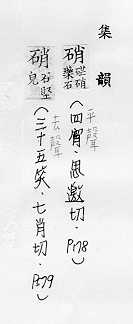 集韻
硝硭硝藥石(四宵・思邀切・P178)
平聲
硝石堅皃(三十五笑・七肖切・P579)
去聲